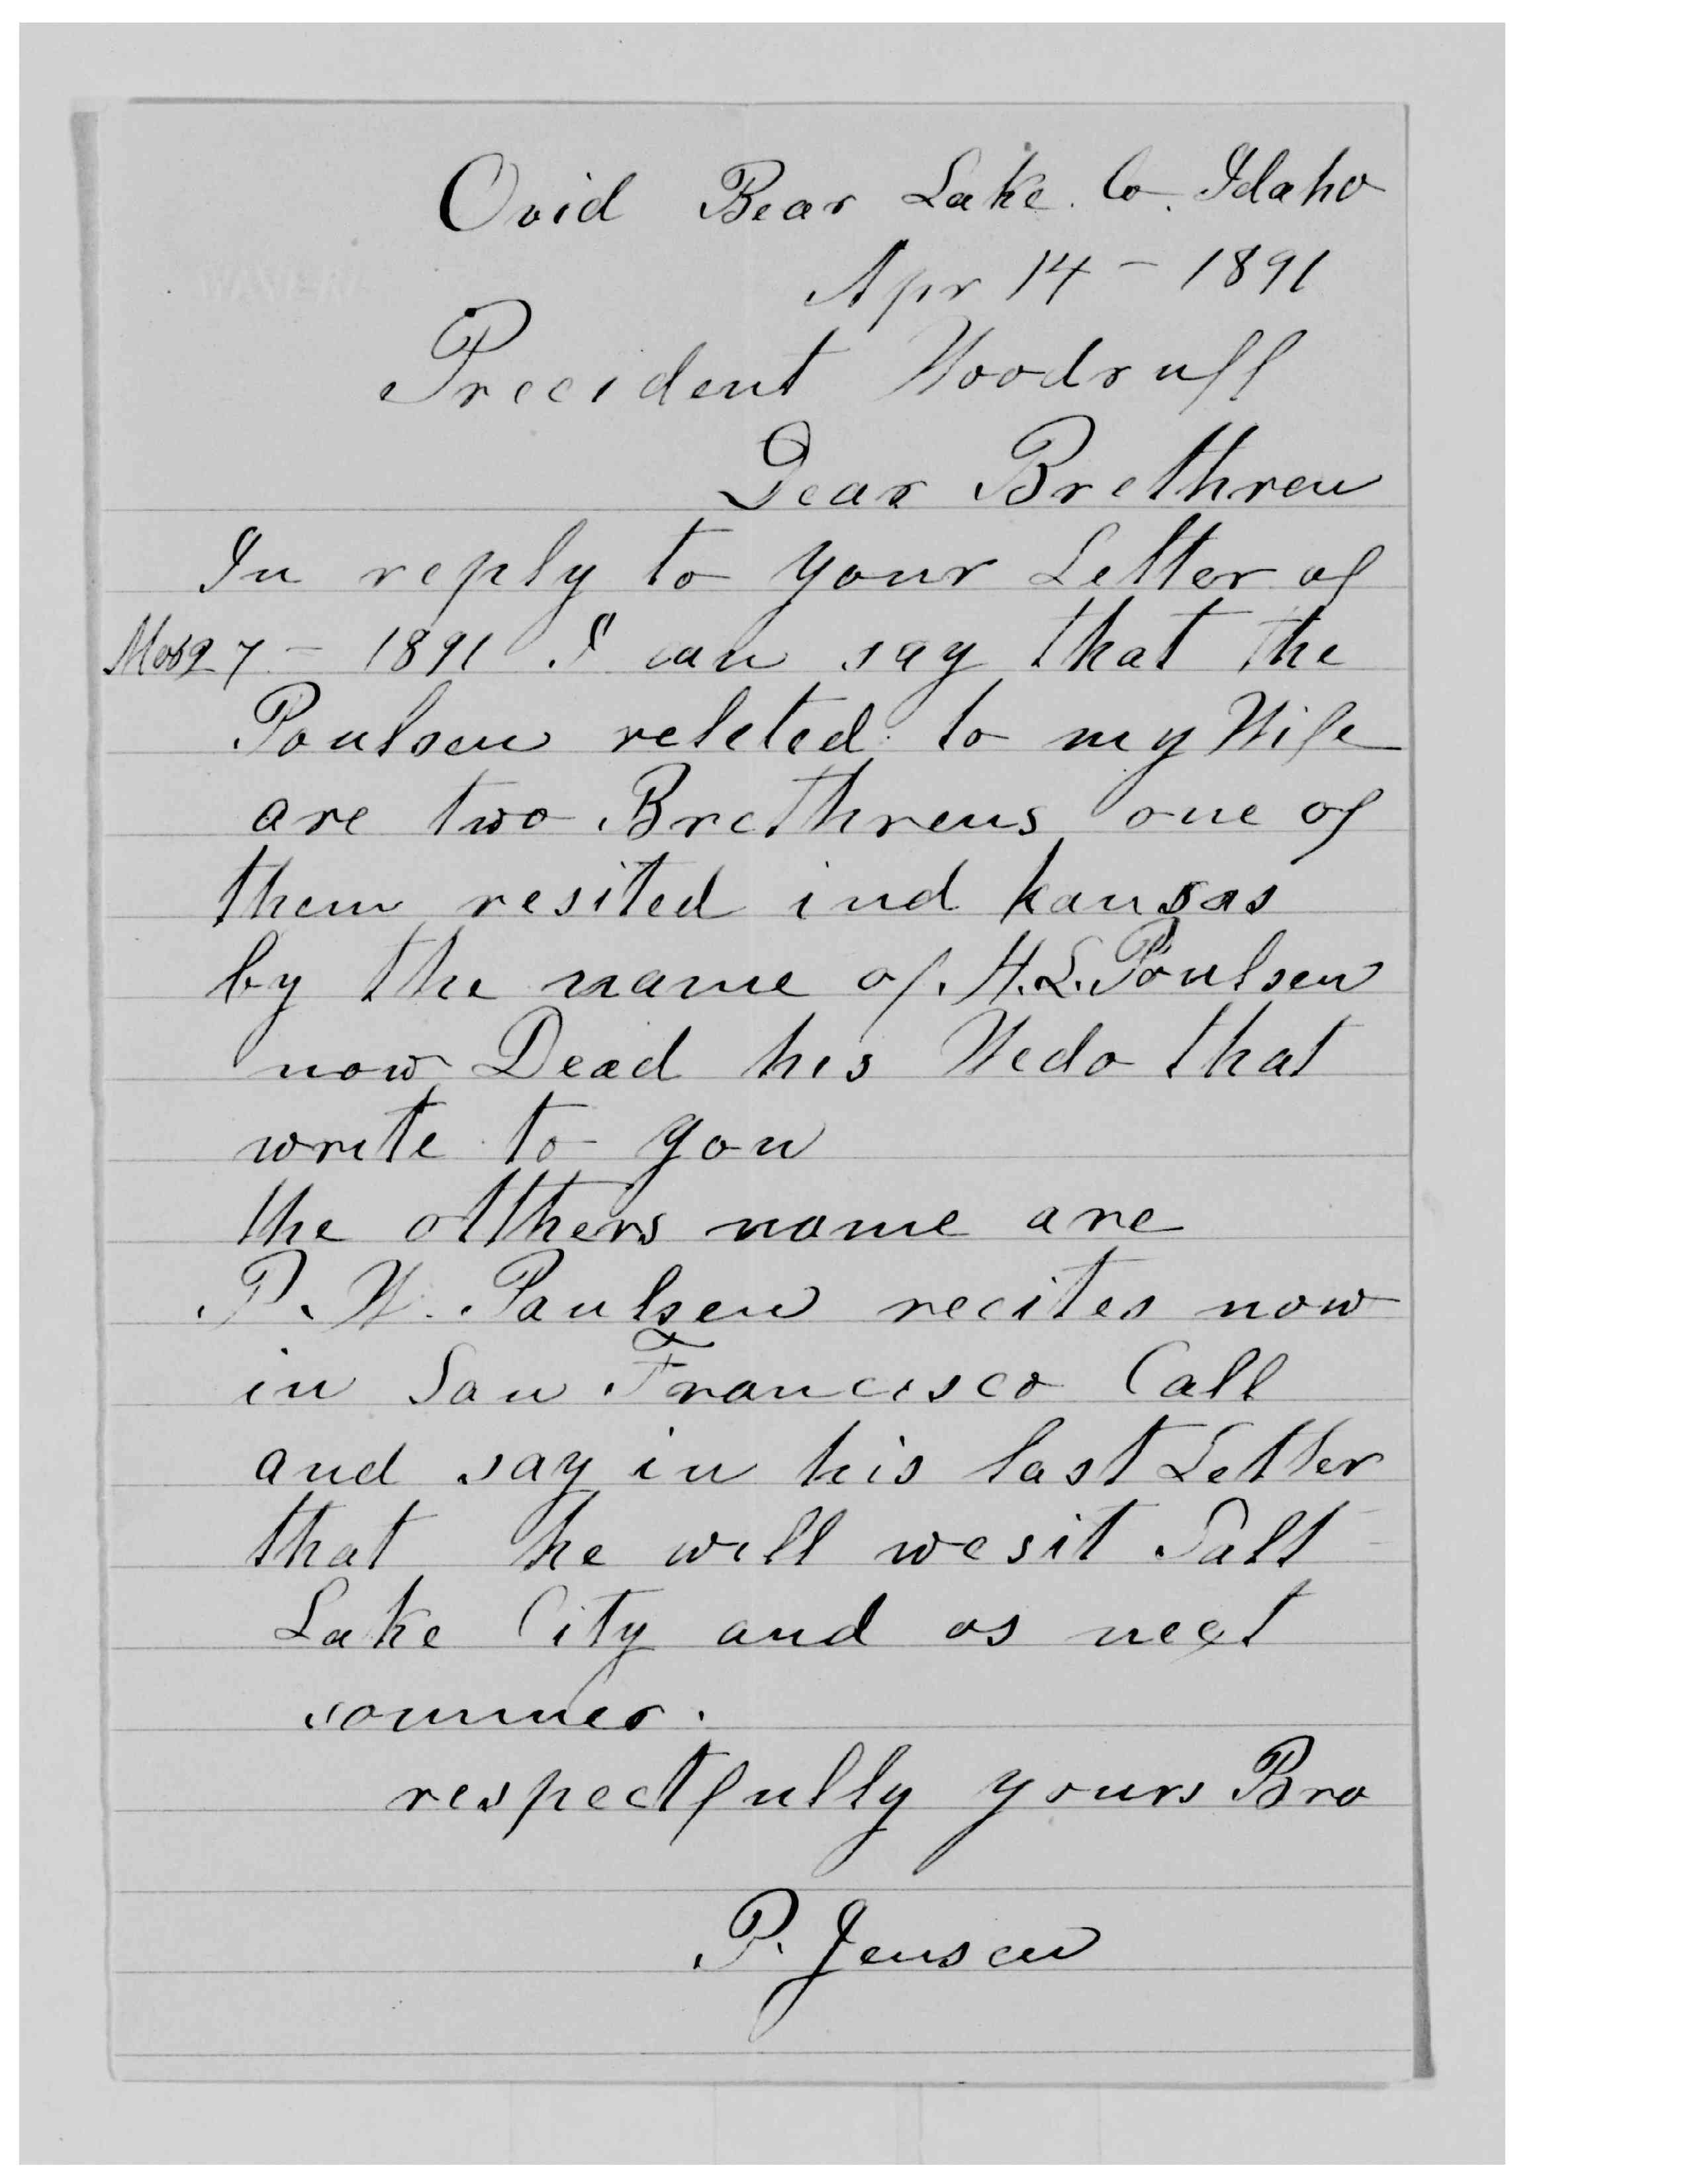 Ovid Bear Lake. Co. Idaho
Apr 14 - 1891
Precident Woodruff
Dear Brethren
In reply to your Letter of
27 - 1891 I can say that the
Poulsen releted to my Wife
are two Brethrens one of
them resited ind kansas
by the name of. H. L. Poulsen
now Dead his Wedo that
write to you
the otthers name are
P. W. Paulsen recites now
in San Francisco Call
and say in his last Letter
that he will wesit Salt
Lake City and os next
sommer.
respectfully yours Bro
P. Jensen